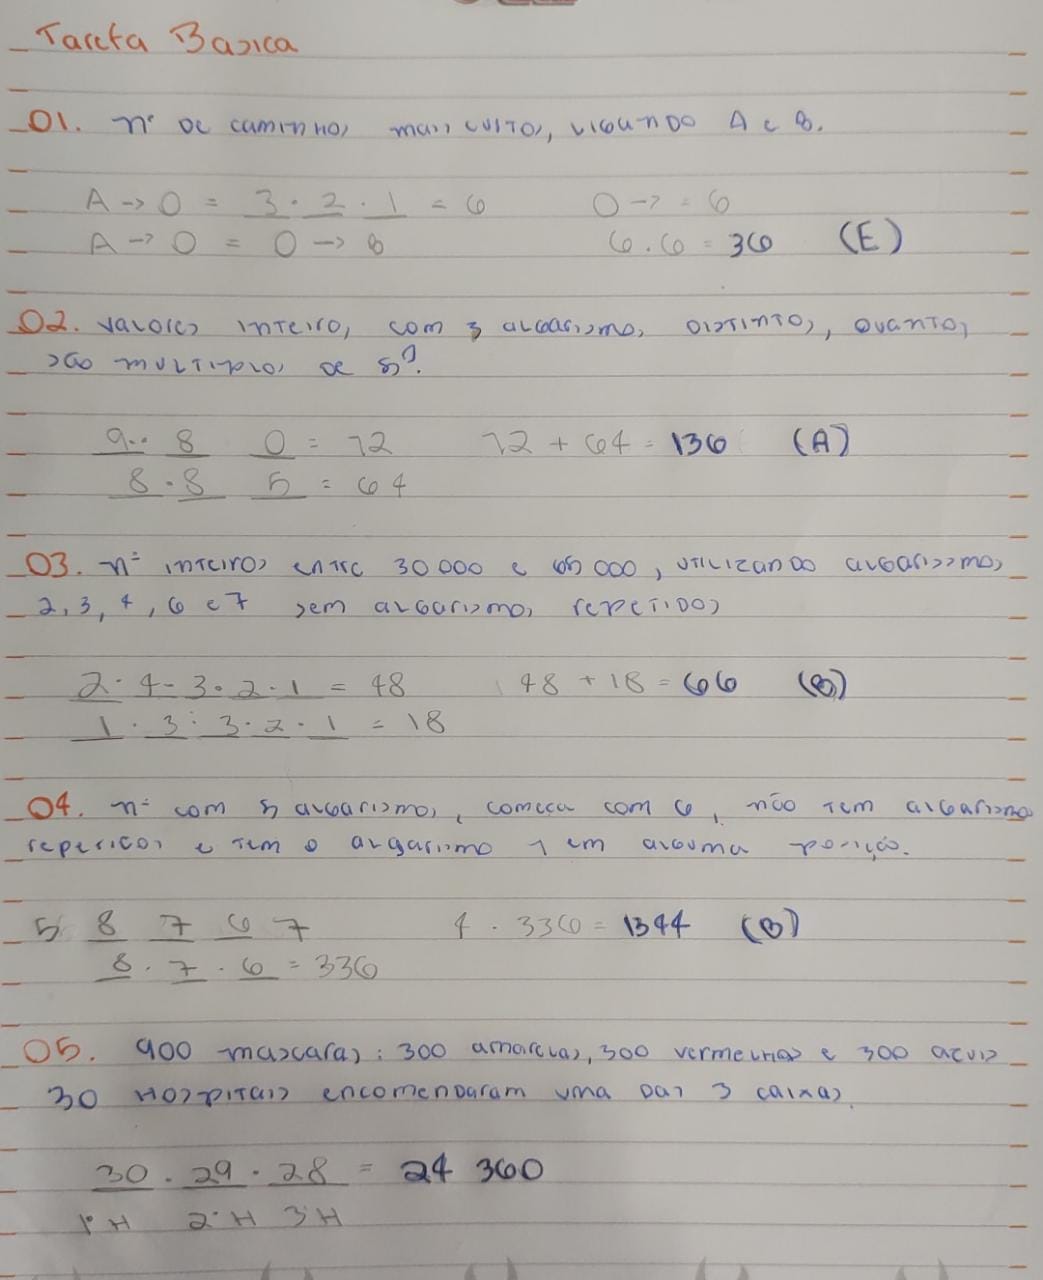 Tarefa Basica
01. nº de caminhos mais curtos, ligando A e B.
A -> O = 3 . 2 . 1 = 6 O -> = 6
A -> O = O -> B 6 . 6 = 36 (E)
02. valores inteiros, com 3 algarismos distintos, quantos
são multiplos de 5?
9 . 8 0 = 72 72 + 64 = 136 (A)
8 . 8 5 = 64
03. nº inteiros entre 30 000 e 65 000, utilizando algarismos
2, 3, 4, 6 e 7 sem algarismos repetidos
2 . 4 . 3 . 2 . 1 = 48 48 + 18 = 66 (B)
1 . 3 . 3 . 2 . 1 = 18
04. nº com 5 algarismos, começa com 6, não tem algarismo
repetidos e tem o algarismo 7 em alguma posição.
5 8 7 6 7 4 . 336 = 1344 (B)
8 . 7 . 6 = 336
05. 900 mascaras: 300 amarelas, 300 vermelhas e 300 azuis
30 Hospitais encomendaram uma das 3 caixas.
30 . 29 . 28 = 24 360
1º H 2º H 3º H